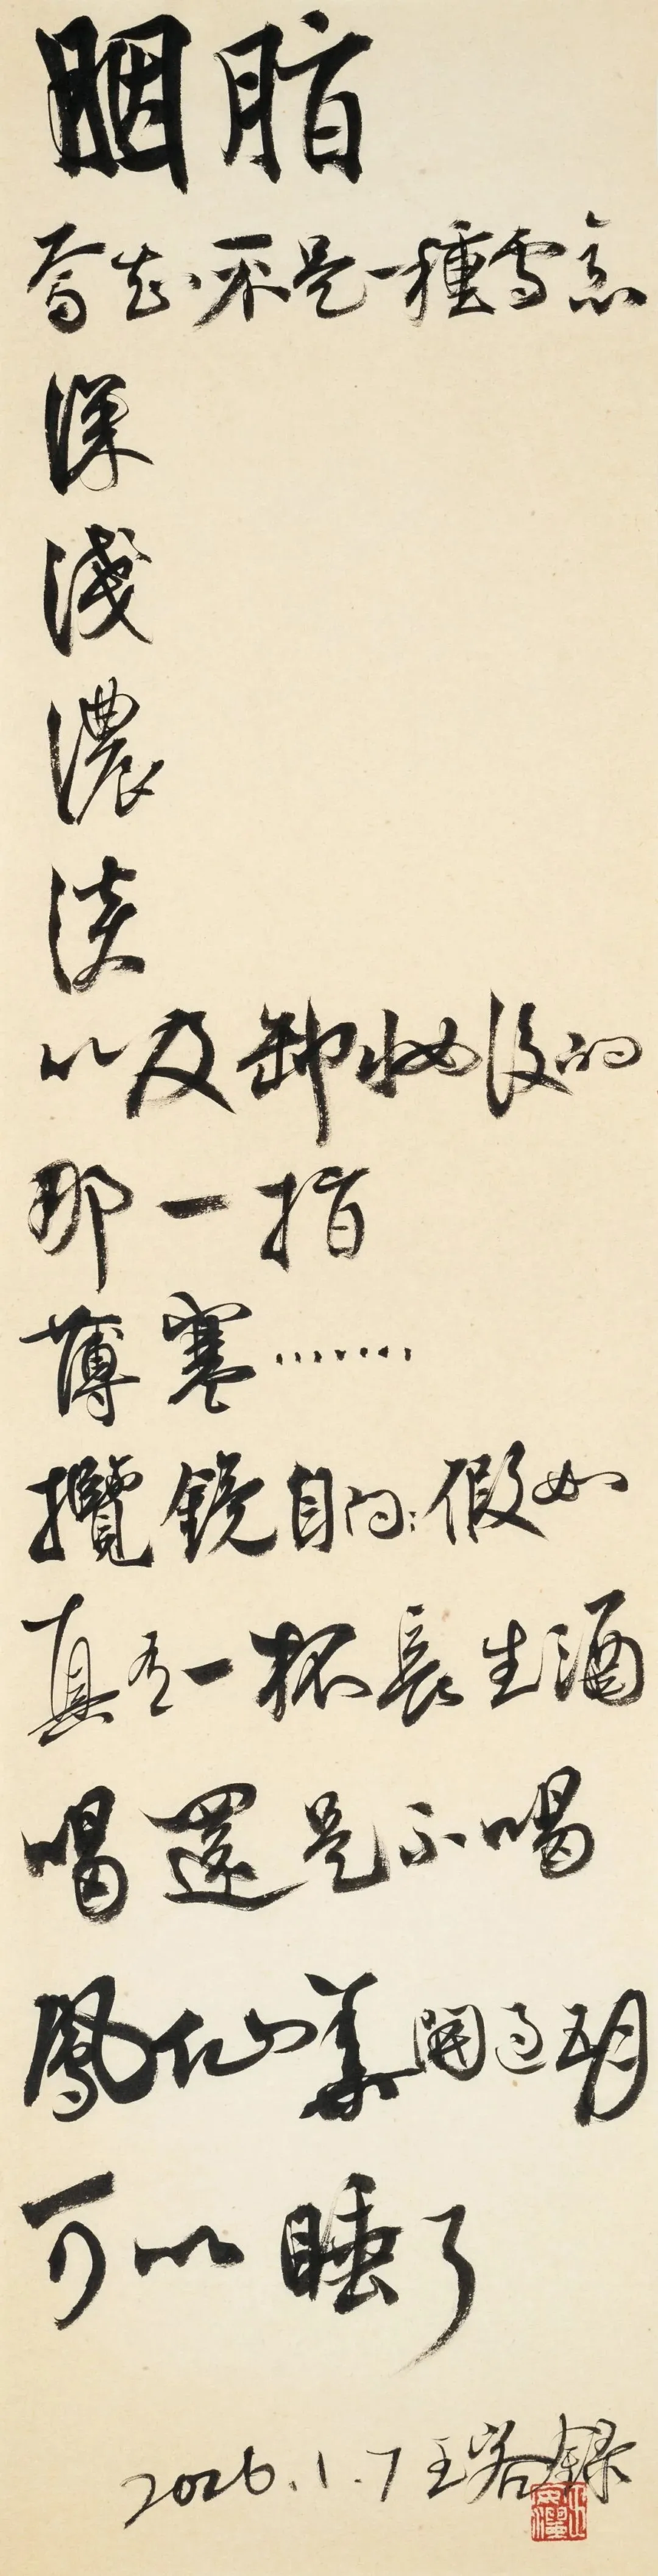 胭脂
奪知不是一種雪意
深
淺
濃
淡
以及卸妝後的
那一指
薄寒……
攬鏡自問:假如
真有一杯長生酒
喝還是不喝
鳳仙葉開過
可以睡了
2026.1.7 王 錄